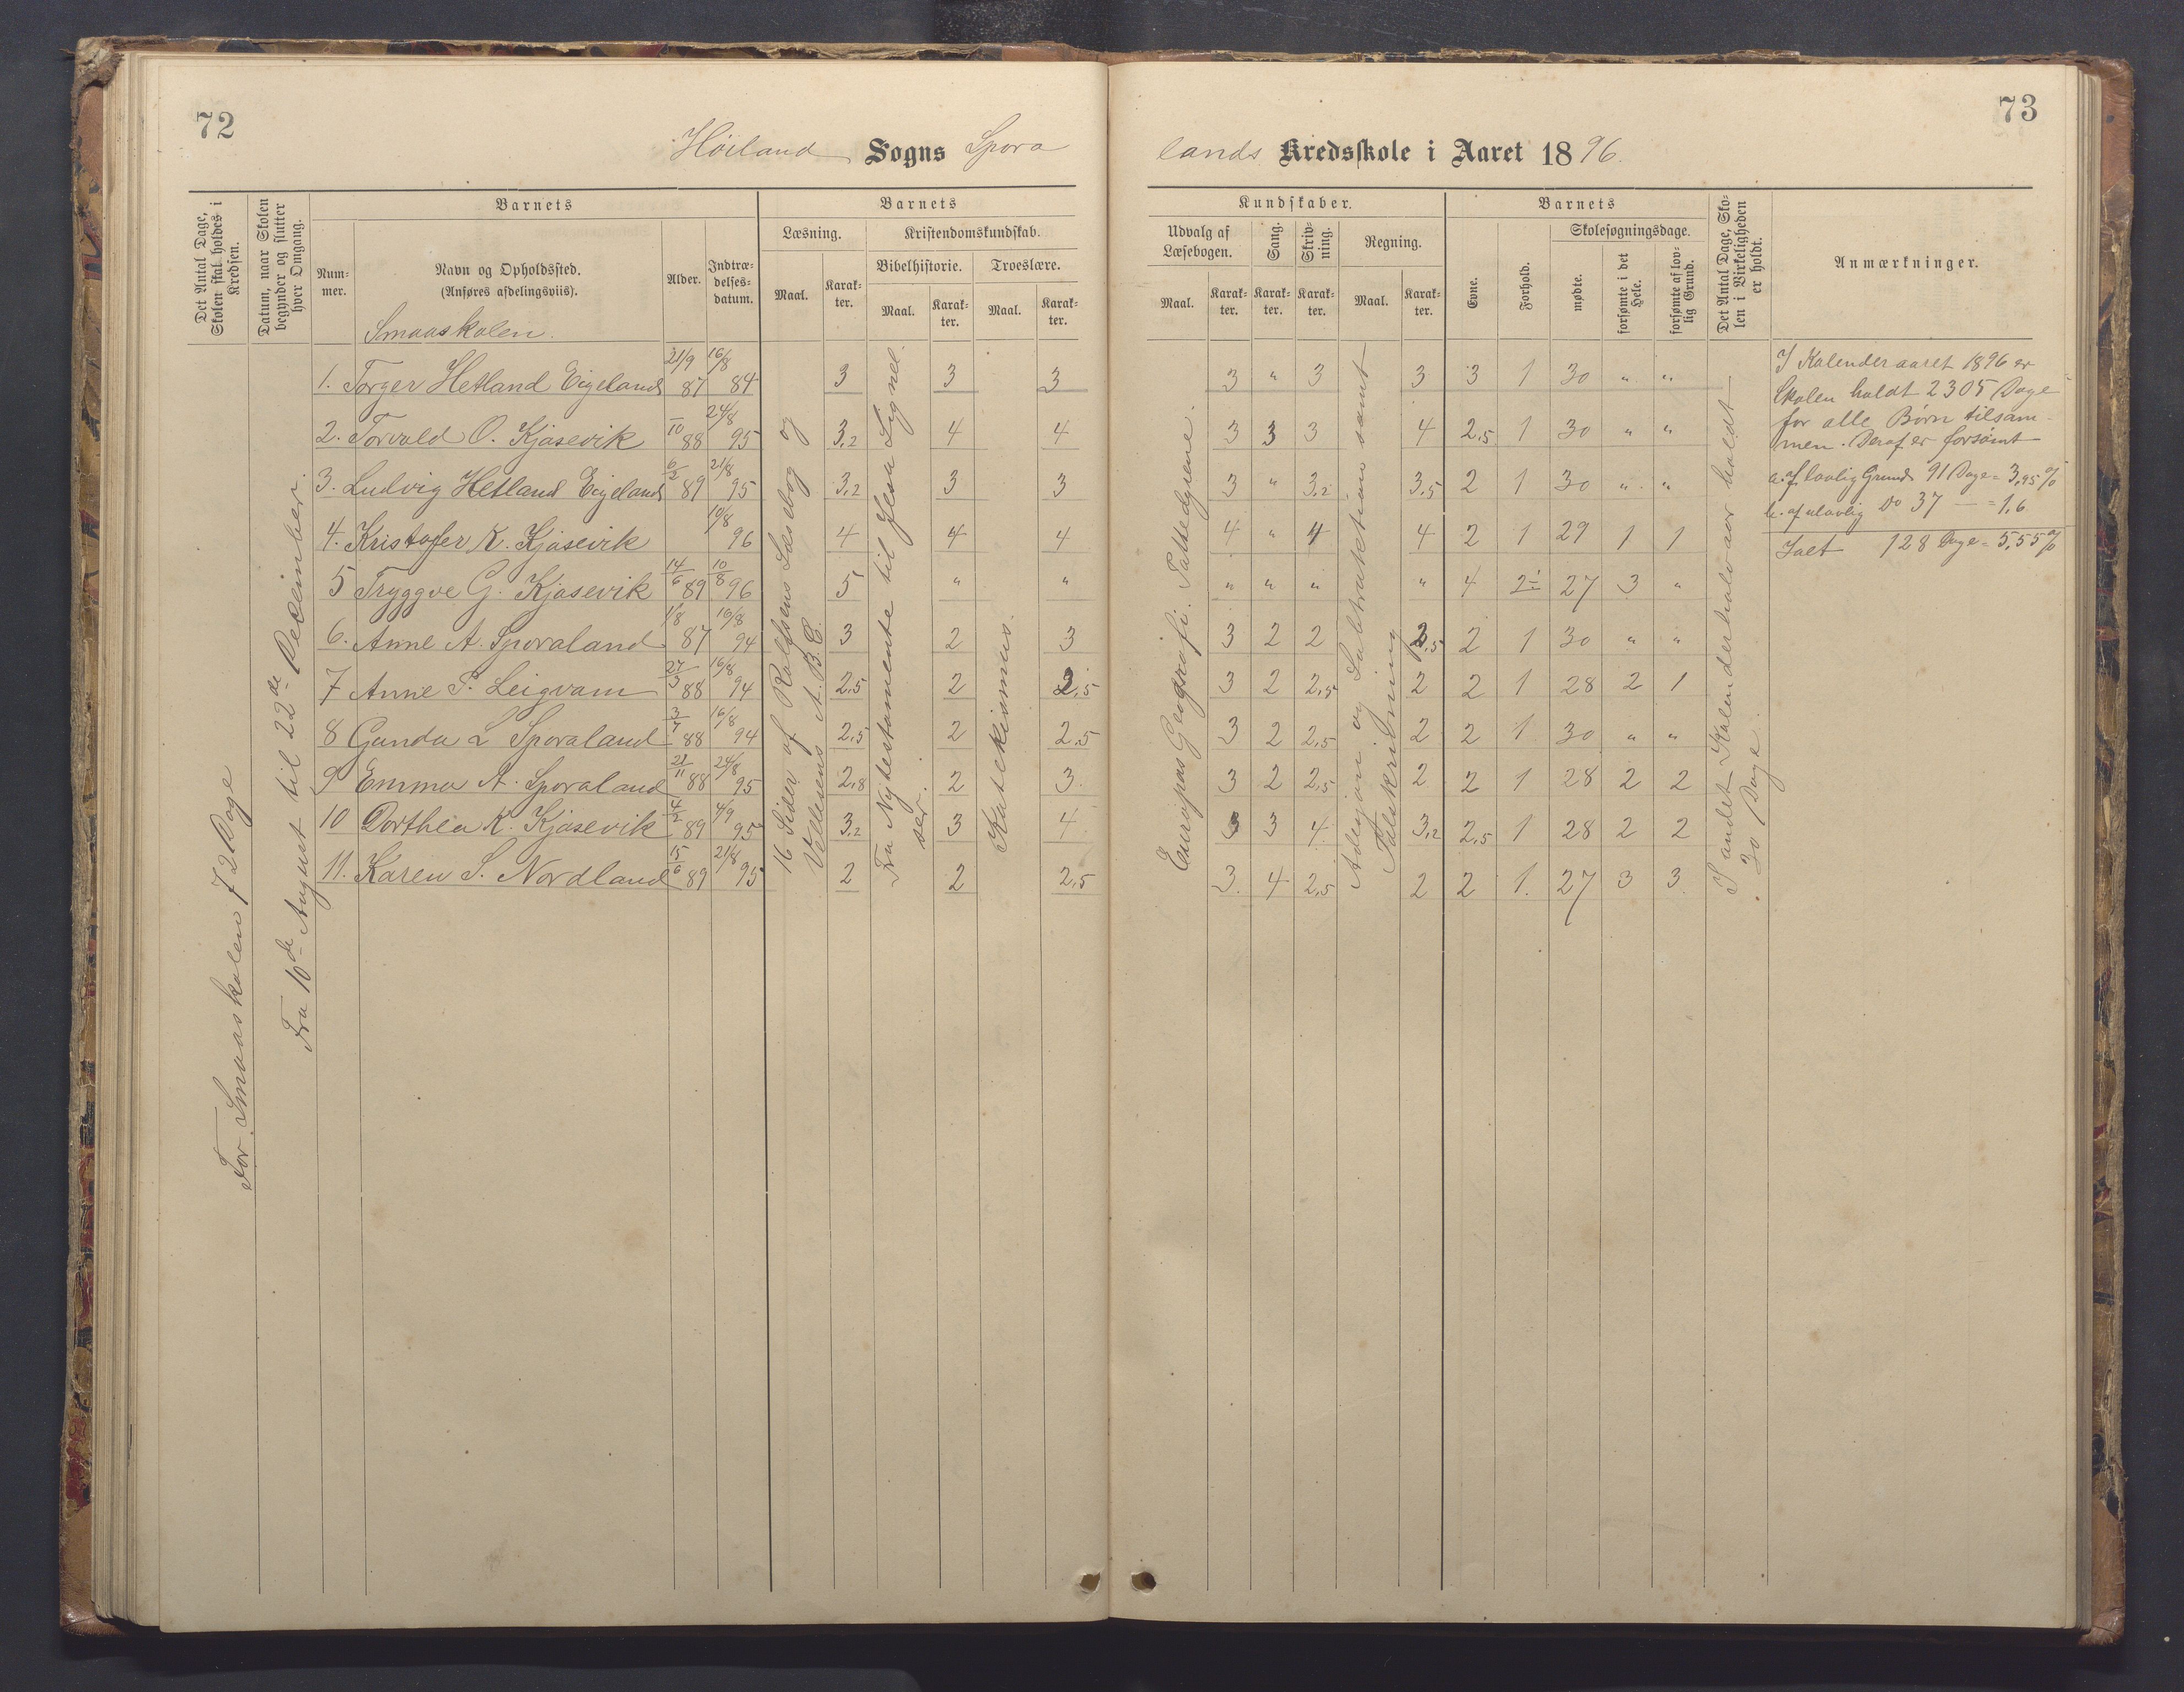 72
Höiland Sogns Spora
Det Antal Dage, Skolen skal holdes i Kredsen.
Datum, naar Skolen begynder og slutter hver Omgang.
Barnets
Num-mer.
Navn og Opholdssted.
(Anføres afdelingsviis).
Smaaskolen.
Alder.
Indtræ-delses-datum.
Barnets
Læsning.
Maal.
Karak-ter.
Kristendomskundskab.
Bibelhistorie.
Maal.
Karak-ter.
Troeslære.
Maal.
Karak-ter.
For Smaaskolen 72 Dage
Fra 10de August til 22de December.
16 Sider af Rolfsens Læsebog og
Vellesens A.B.C.
Fra Nytestamente til Jesu Lignel
ser.
Katekismus.
1. Torger Hetland Eigeland 21/9 87 16/8 84 3 3 3
2. Torvald O. Kjosevik 10 88 24/8 95 3,2 4 4
3. Ludvig Hetland Eigeland 6/2 89 21/8 95 3,2 3 3
4. Kristofer K. Kjosevik 10/8 96 4 4 4
5 Tryggve G. Kjosevik 14/6 89 10/8 96 5 " "
6. Anne A. Sporaland 1/8 87 16/8 94 3 2 3
7 Anne P. Leigvam 27/3 88 16/8 94 2,5 2 2,5
8 Gunda L Sporaland 3/7 88 16/8 94 2,5 2 2,5
9 Emma A. Sporaland 21/11 88 24/8 95 2,8 2 3.
10 Dorthea K. Kjosevik 4/2 89 4/9 95 3,2 3 4
11. Karen S. Nordland 15/6 89 21/8 95 2 2 2,5
73
lands Kredsskole i Aaret 1896.
Kundskaber.
Udvalg af Læsebogen.
Maal.
Karak-ter.
Sang.
Karak-ter.
Skriv-ning.
Karak-ter.
Regning.
Maal.
Karak-ter.
Barnets
Evne.
Forhold.
Skolesøgningsdage.
mødte.
forsømte i det Hele.
forsømte af lov-lig Grund.
Det Antal Dage, Sko-len i Virkeligheden er holdt.
Anmærkninger.
Europas Geografi.
Adisjon og Subtraktion samt
Talskrivning
I andet Kalenderhalvaar holdt
30 Dage.
3 " 3 3 3 1 30 " "
3 3 3 4 2,5 1 30 " "
3 " 3,2 3,5 2 1 30 " "
4 " 4 4 2 1 29 1 1
" " " " 4 2÷ 27 3 "
3 2 2 2,5 2 1 30 " "
3 2 2,5 2 2 1 28 2 1
3 2 2,5 2 2 1 30 " "
3 2 2,5 2 2 1 28 2 2
3 3 4 3,2 2,5 1 28 2 2
3. 4 2,5 2 2 1. 27 3 3.
I Kalenderaaret 1896 er
Skolen holdt 2305 Dage
for alle Børn tilsam-
men. Deraf er forsömt
a. af lovlig Grund 91 Dage = 3,95 %
b. af ulovlig Do 37 — = 1,6
Ialt 128 Dage = 5,55 %